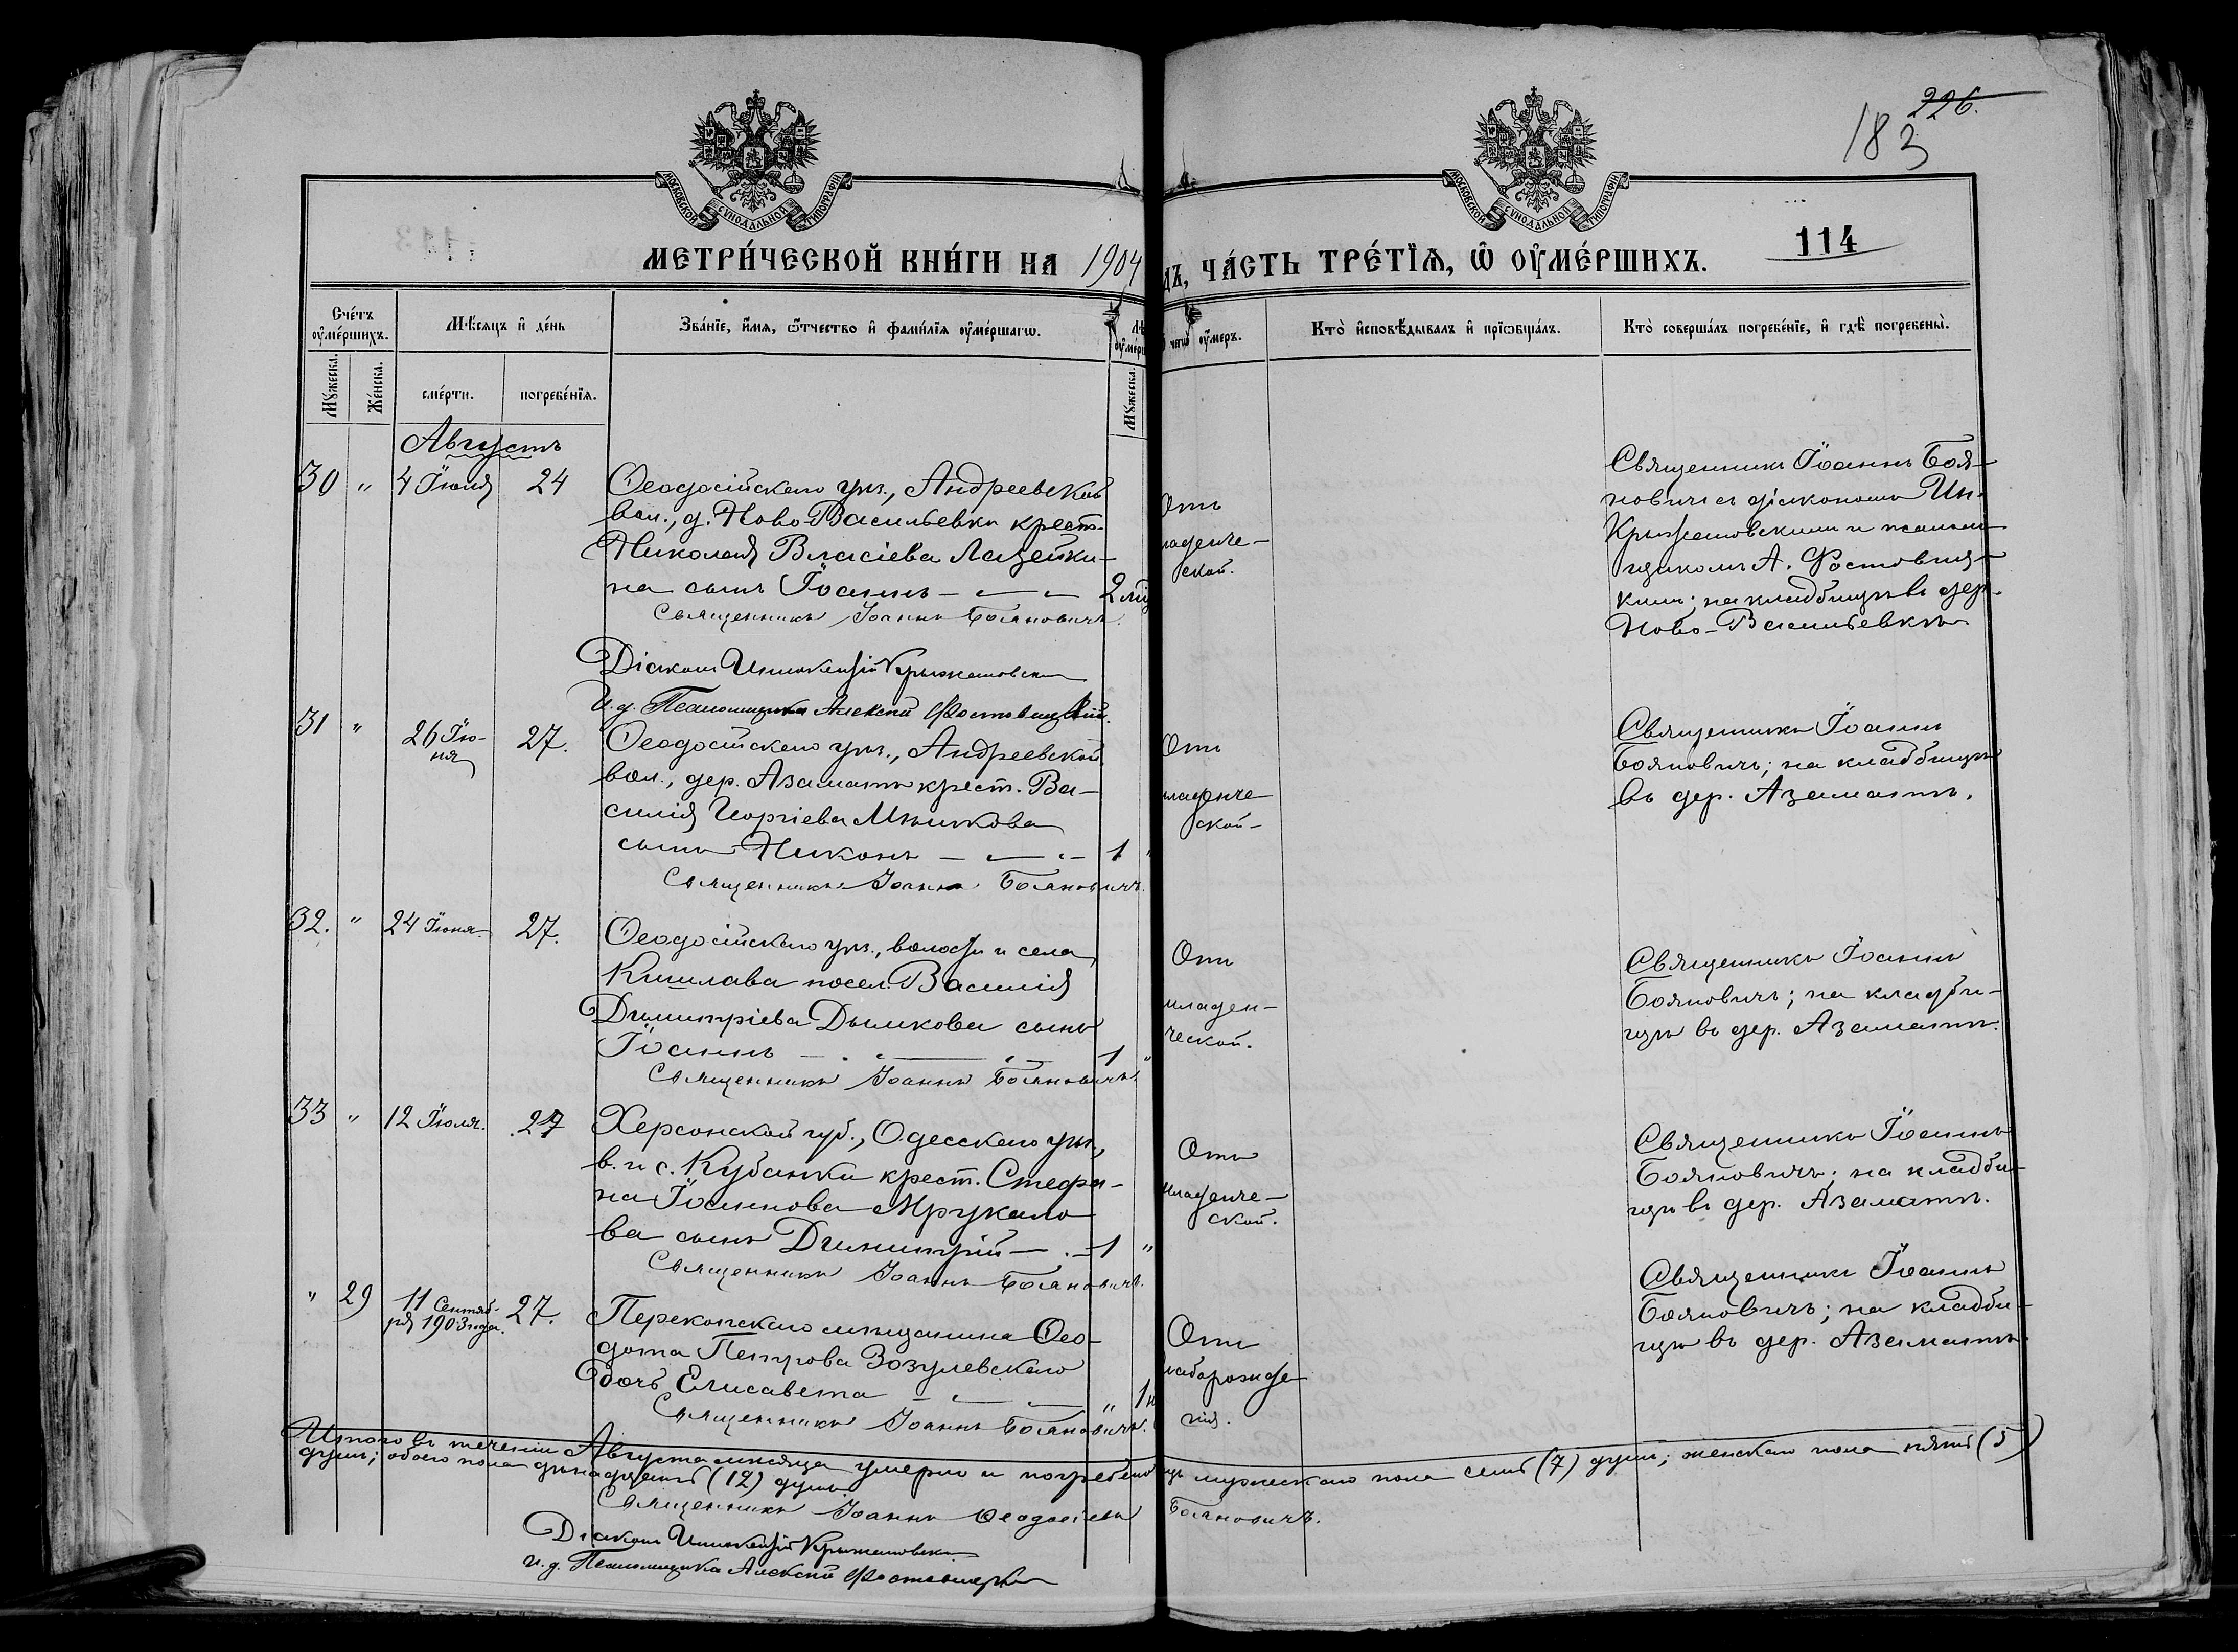 226.
183
114
МОСКОВСКОЙ СУНОДАЛЬНОЙ ТИПОГРАФІИ
МОСКОВСКОЙ СУНОДАЛЬНОЙ ТИПОГРАФІИ
МЕТРИ́ЧЕСКОЙ КНИ́ГИ НА 1904
ДЪ, ЧА́СТЬ ТРЕ́ТЇѦ, Ѡ҆ ОУ҆МЕ́РШИХЪ.
Сче́тъ оу҆ме́ршихъ.
Мѣ́сяцъ и҆ де́нь
Зва́нїе, и҆́мѧ, ѻ҆́тчество и҆ фами́лїѧ оу҆ме́ршагѡ.
оу҆́меръ.
Кто̀ и҆сповѣ́дывалъ и҆ прїѡбща́лъ.
Кто̀ соверша́лъ погребе́нїе, и҆ гдѣ̀ погребены̀.
Мꙋ́жеска.
Же́нска.
сме́рти.
погребе́нїѧ.
Мꙋ́жеска.
Августъ
30 " 4 Іюля 24
Ѳеодосійскаго уѣз., Андреевской
вол., д. Ново-Васильевки крест.
Николая Власіева Лазейки-
на сынъ Іоаннъ 2
Священникъ Іоаннъ Бояновичъ.
Діаконъ Иннокентій Крыжановскій
И. д. Псаломщика Алексій Фостовицкій.
Отъ
младенче-
ской.
Священникъ Іоаннъ Боя-
новичъ съ діакономъ Ин.
Крыжановскимъ и псалом-
щикомъ А. Фостовиц-
кимъ; на кладбищѣ въ дер.
Ново-Васильевкѣ
31 " 26 Ію-
ня 27.
Ѳеодосійскаго уѣз., Андреевской
вол., дер. Азаматъ крест. Ва-
силія Георгіева
сынъ Никонъ 1 "
Священникъ Іоаннъ Бояновичъ.
Отъ
младенче
ской
Священникъ Іоаннъ
Бояновичъ; на кладбищѣ
въ дер. Азаматъ.
32. " 24 Іюня 27.
Ѳеодосійскаго уѣз., волости и села
Кишлава посел. Василія
Димитріева Дымкова сынъ
Іоаннъ 1 "
Священникъ Іоаннъ Бояновичъ.
Отъ
младен-
ческой.
Священникъ Іоаннъ
Бояновичъ; на кладби-
щѣ въ дер. Азаматъ.
33 " 12 Іюля. 27
Херсонской губ., Одесскаго уѣз.,
в. и с. Кубанки крест. Стефа-
на Іоаннова Мрукало
ва сынъ Димитрій 1 "
Священникъ Іоаннъ Бояновичъ.
Отъ
младенче-
ской.
Священникъ Іоаннъ
Бояновичъ; на кладби-
щѣ въ дер. Азаматъ.
" 29 11 Сентяб-
ря 1903 года. 27.
Перекопскаго мѣщанина Ѳео-
дота Петрова Зозулевскаго
дочь Елисавета " 1
Священникъ Іоаннъ Бояновичъ.
Отъ
слаборожде
нія.
Священникъ Іоаннъ
Бояновичъ; на кладби-
щѣ въ дер. Азаматъ.
Итого въ теченіи Августа мѣсяца умерло и погребено мужескаго пола семь (7) душъ; женскаго пола пять (5)
душъ; обоего пола двѣнадцать (12) душъ
Священникъ Іоаннъ Ѳеодосіевъ Бояновичъ.
Діаконъ Иннокентій Крыжановскій
и. д. Псаломщика Алексій Фостовицкій